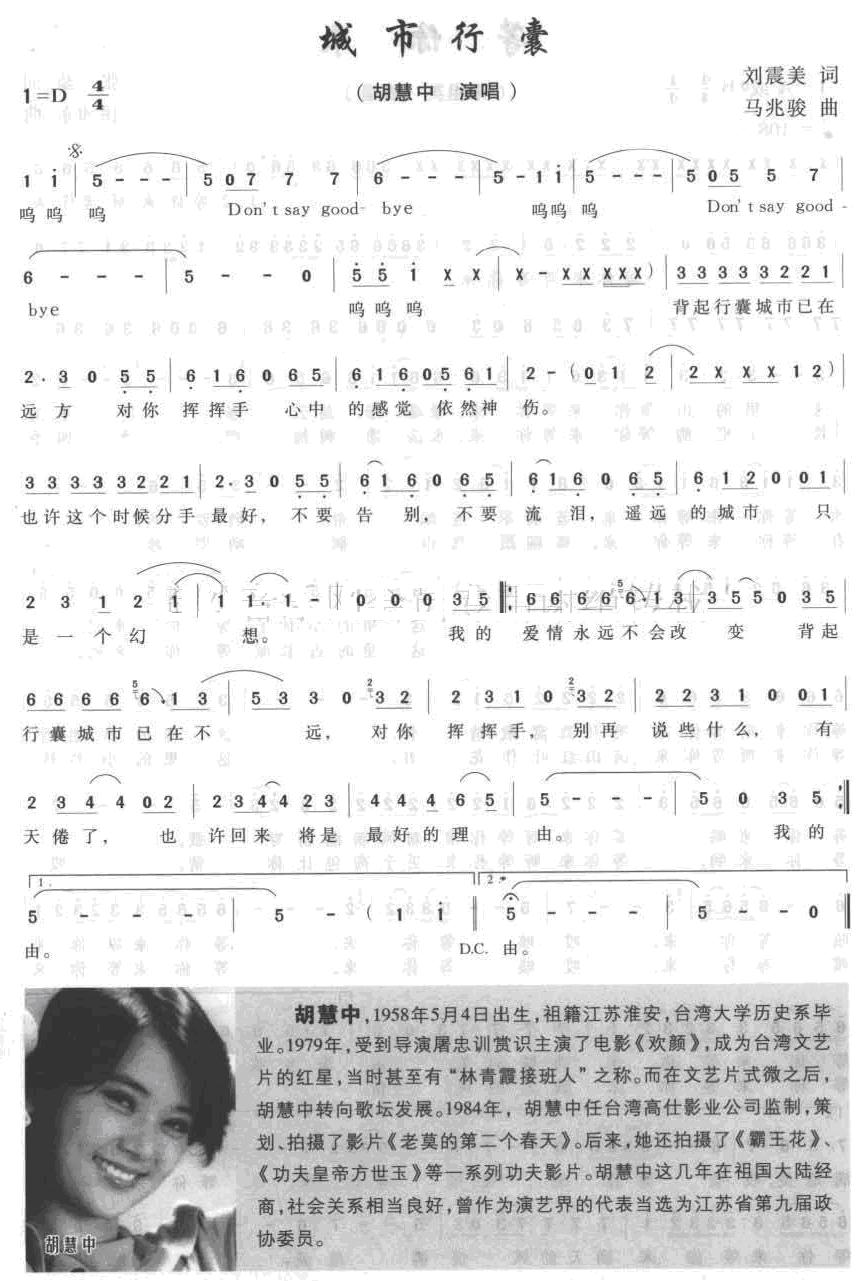 城市行囊
1=D 4/4
(胡慧中 演唱)
刘震美 词
马兆骏 曲
1 i 5 - - - 5 0 7 7 7 6 - - - 5 - 1 i 5 - - - 5 0 5 5 7
呜呜 呜 Don't say good- bye 呜呜 呜 Don't say good-
6 - - - 5 - - 0 5 5 i x x x - x x x x x) 3 3 3 3 3 2 2 1
bye 呜 呜 呜 背起行囊城市已在
2. 3 0 5 5 6 1 6 0 6 5 6 1 6 0 5 6 1 2 - (0 1 2 2 x x x 1 2)
远方 对你 挥挥手 心中 的感觉 依然神 伤。
3 3 3 3 3 2 2 1 2. 3 0 5 5 6 1 6 0 6 5 6 1 6 0 6 5 6 1 2 0 0 1
也许这个时候分手 最好, 不要 告 别, 不要 流 泪, 遥远 的城市 只
2 3 1 2 1 1 1. 1 - 0 0 0 3 5 6 6 6 6 5 6 1 3 3 5 5 0 3 5
是 一 个 幻 想。 我的 爱情永远不会改 变 背起
6 6 6 6 5 6. 1 3 5 3 3 0 2 3 2 2 3 1 0 2 3 2 2 2 3 1 0 0 1
行囊城市已在不 远, 对你 挥挥手, 别再 说些什么, 有
2 3 4 4 0 2 2 3 4 4 2 3 4 4 4 4 6 5 5 - - - 5 0 3 5
天倦了, 也 许回来 将是 最好的理 由。 我的
1. 2.
5 - - - 5 - (1 i 5 - - - 5 - - 0
由。 D.C. 由。
胡慧中,1958年5月4日出生,祖籍江苏淮安,台湾大学历史系毕
业。1979年,受到导演屠忠训赏识主演了电影《欢颜》,成为台湾文艺
片的红星,当时甚至有“林青霞接班人”之称。而在文艺片式微之后,
胡慧中转向歌坛发展。1984年, 胡慧中任台湾高仕影业公司监制,策
划、拍摄了影片《老莫的第二个春天》。后来,她还拍摄了《霸王花》、
《功夫皇帝方世玉》等一系列功夫影片。胡慧中这几年在祖国大陆经
商,社会关系相当良好,曾作为演艺界的代表当选为江苏省第九届政
协委员。
胡慧中